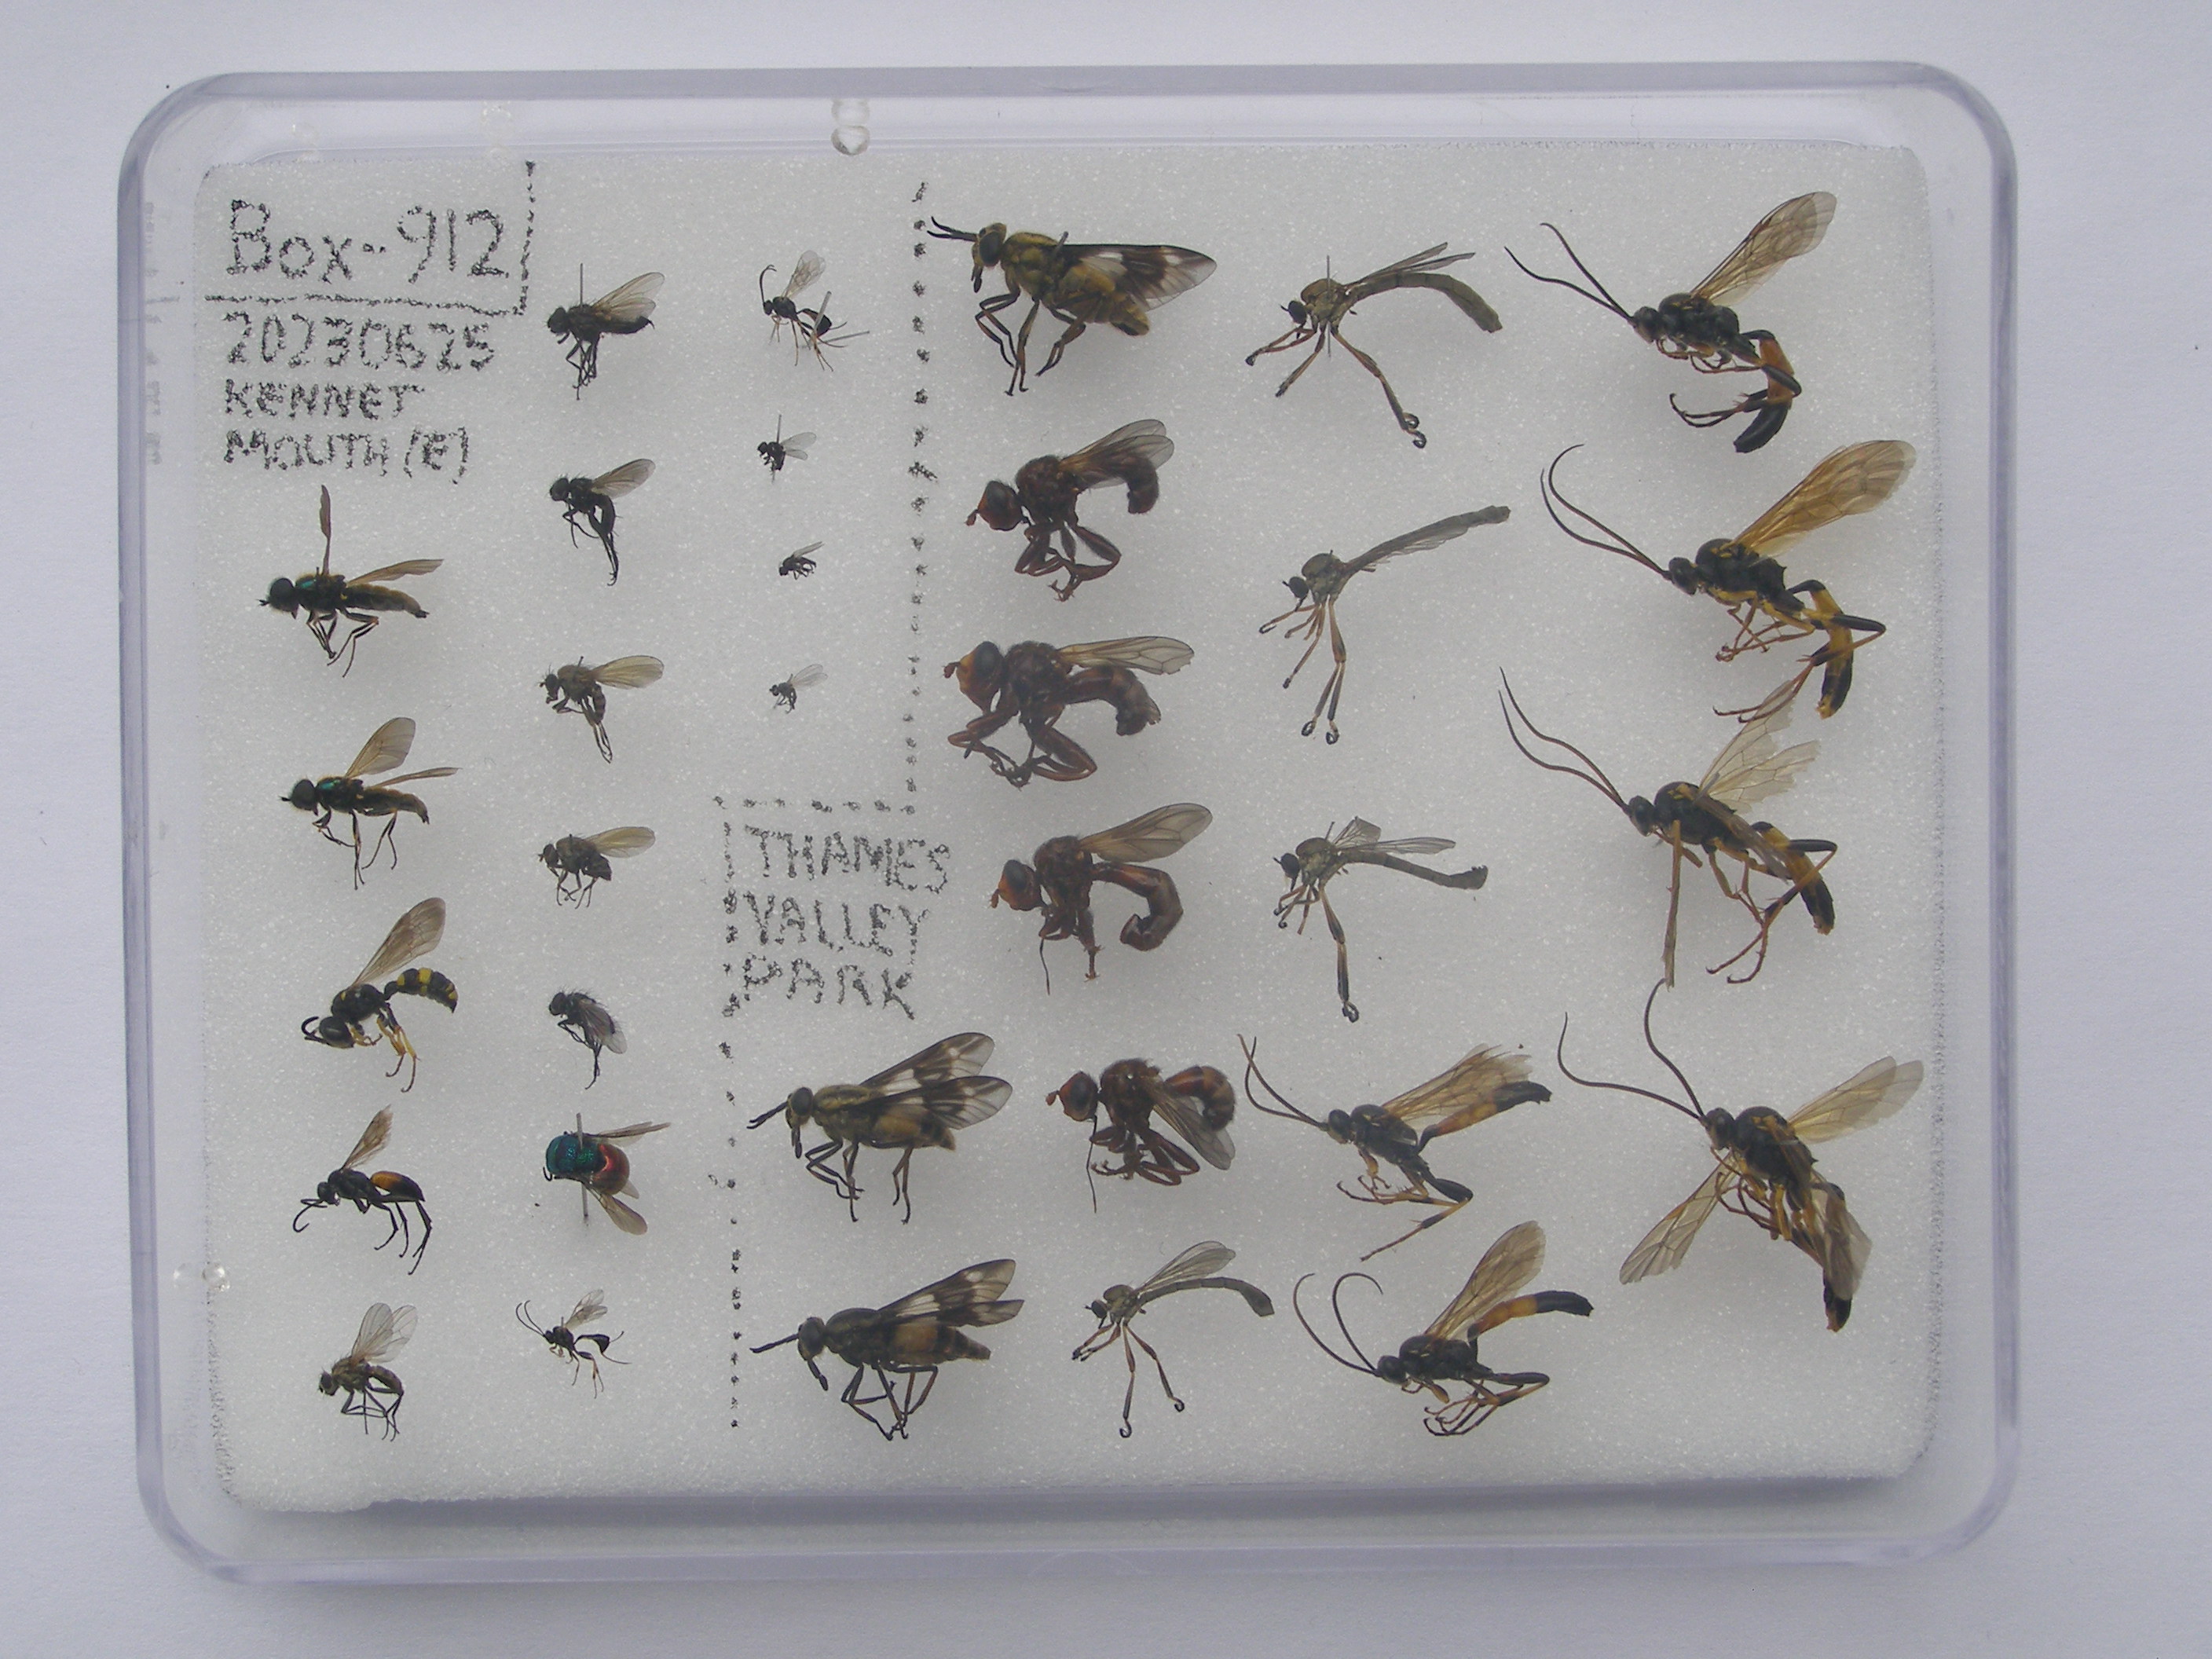 Box-912
20230625
KENNET
MOUTH (E)
THAMES
VALLEY
PARK